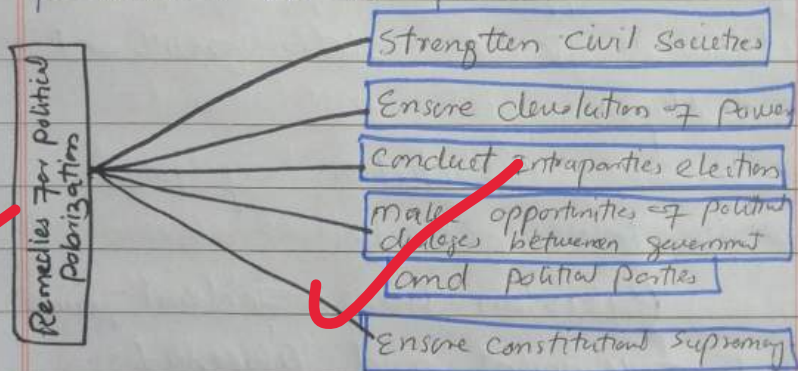 Remedies for political
polarization
Strengthen Civil Societies
Ensure devolution of Power
Conduct intraparties election
Make opportunities of political
dialoges betweeen government
and political parties
Ensure constitutional supremacy